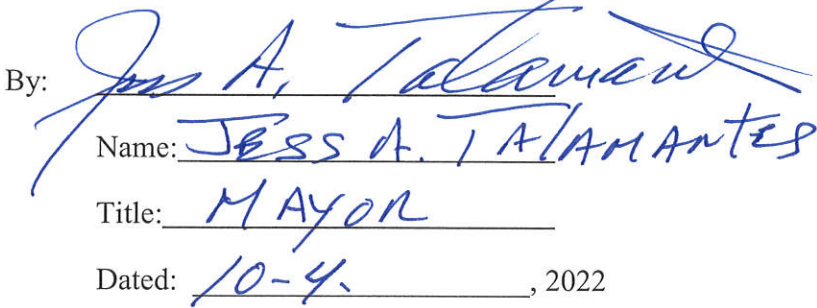 By: Jess A. Talamantes
Name: JESS A. TALAMANTES
Title: MAYOR
Dated: 10-4. , 2022